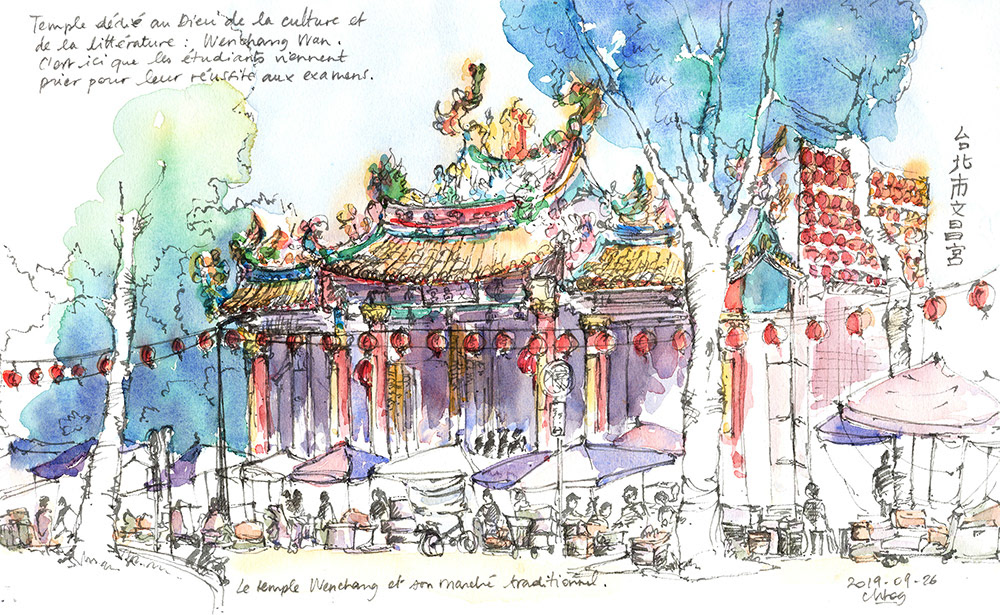 Temple dédié au Dieu de la culture et
de la littérature : Wenchang Wan.
C'est ici que les étudiants viennent
prier pour leur réussite aux examens.
台北市文昌宮
Le temple Wenchang et son marché traditionnel.
2019-09-26